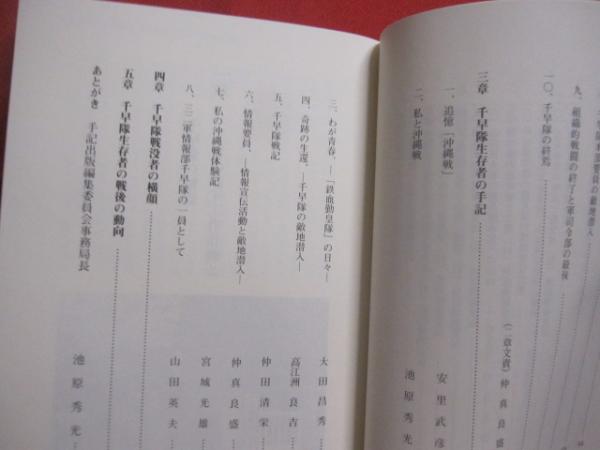 九、組織的戦闘の終了と軍司令部の最後
一〇、千早隊の終焉
(二章文責) 仲真良盛
三章 千早隊生存者の手記
一、追憶「沖縄戦」 安里武彦
二、私と沖縄戦 池原秀光
三、わが青春、―「鉄血勤皇隊」の日々― 大田昌秀
四、奇跡の生還、―千早隊の敵地潜入― 高江洲良吉
五、千早隊戦記 仲田清栄
六、情報要員、―情報宣伝活動と敵地潜入― 仲真良盛
七、私の沖縄戦体験記 宮城光雄
八、三二軍情報部千早隊の一員として 山田英夫
四章 千早隊戦没者の横顔
五章 千早隊生存者の戦後の動向
あとがき 手記出版編集委員会事務局長 池原秀光